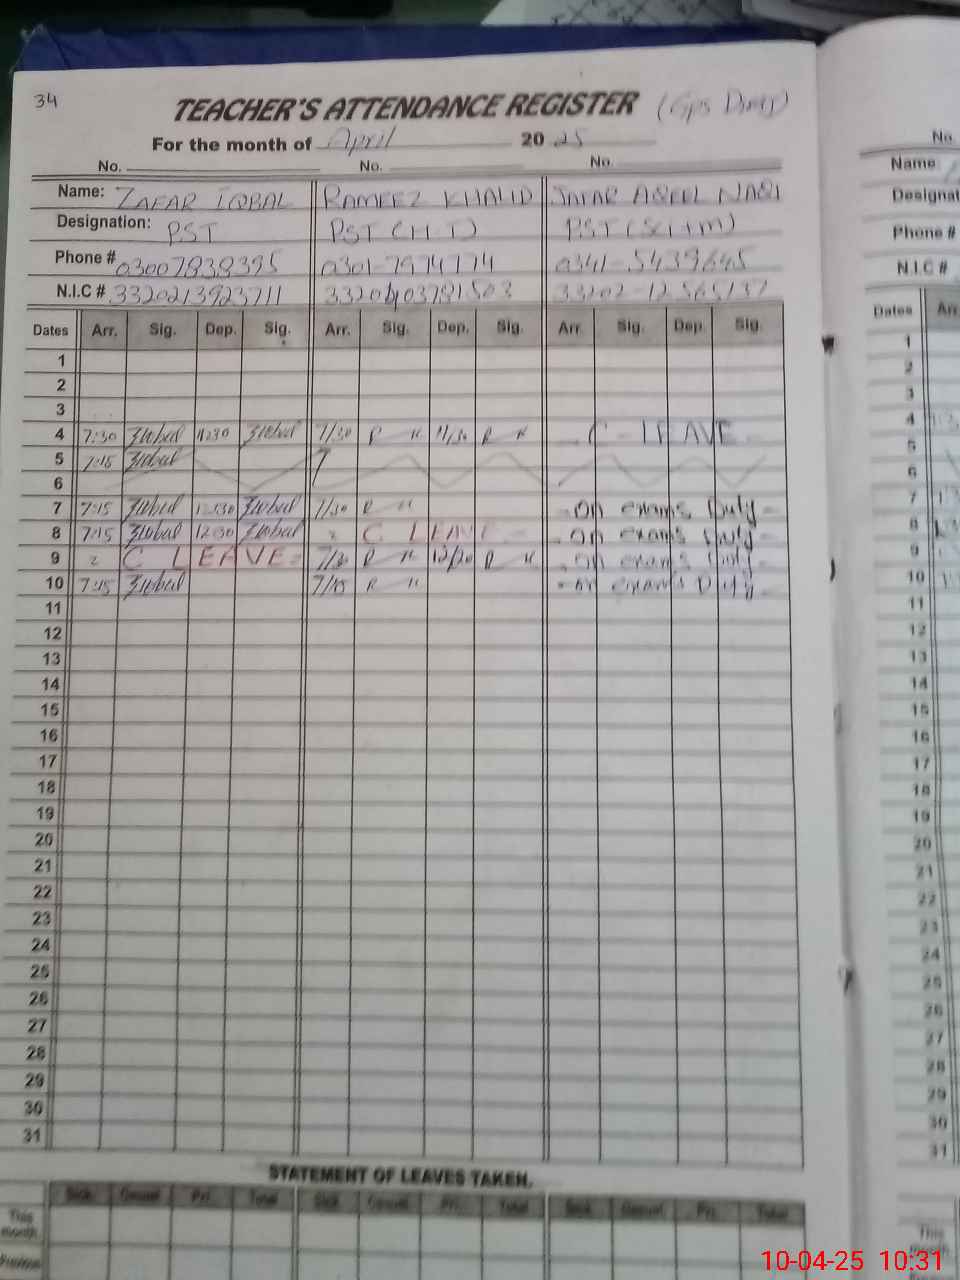 34
TEACHER'S ATTENDANCE REGISTER (Gps Dinly)
For the month of April 2025
No. No. No.
Name: ZAFAR IQBAL RAMEEZ KHALID JAFAR AQEEL NAQI
Designation: PST PST (H.T)
Phone # 03007838395 0301-7974774 0341-5439645
N.I.C # 3320213923711
Dates Arr. Sig. Dep. Sig. Arr. Sig. Dep. Sig. Arr. Sig. Dep. Sig.
1
2
3
4 7:30 1130 7/30 11/30 C-LEAVE
5 7:15
6
7 7:15 1230 7/30 R H - on exams Duty -
8 7:15 1230 C LEAVE - - on exams Duty -
9 C LEAVE - 7/30 R H 12/30 R H - on exams Duty -
10 7:15 7/15 R H - on exams Duty -
11
12
13
14
15
16
17
18
19
20
21
22
23
24
25
26
27
28
29
30
31
STATEMENT OF LEAVES TAKEN.
Sick. Casual. Pri. Total Sick. Casual. Pri. Total Sick. Casual. Pri. Total
This month
Previous
No.
Name
Designat
Phone #
N.I.C #
Dates Arr
1
2
3
4
5
6
7
8
9
10
11
12
13
14
15
16
17
18
19
20
21
22
23
24
25
26
27
28
29
30
31
This month
10-04-25 10:31